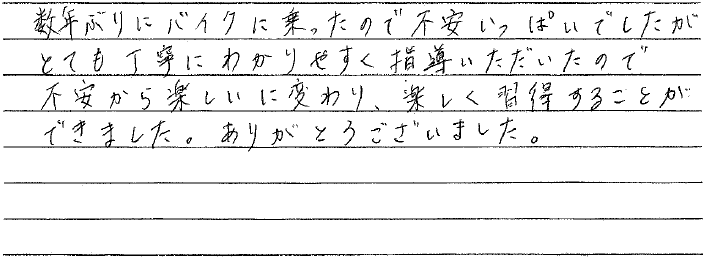 数年ぶりにバイクに乗ったので不安いっぱいでしたが
とても丁寧にわかりやすく指導いただいたので
不安から楽しいに変わり、楽しく習得することが
できました。ありがとうございました。